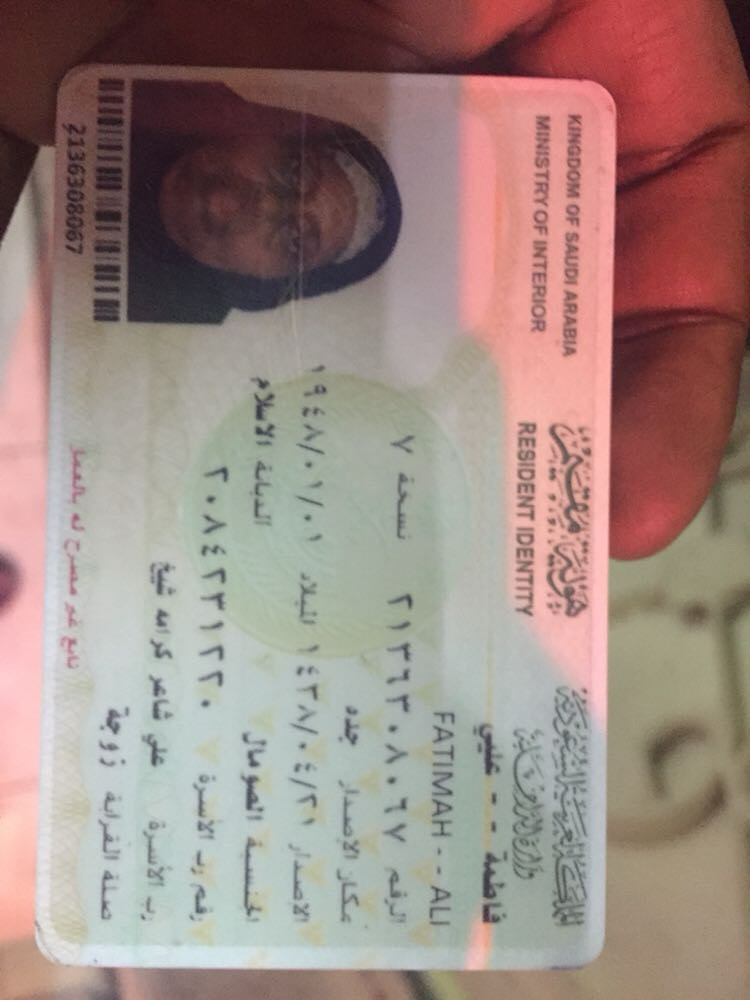 المملكة العربية السعودية
وزارة الداخلية
هوية مقيم
KINGDOM OF SAUDI ARABIA
MINISTRY OF INTERIOR
RESIDENT IDENTITY
فاطمة - - علي
FATIMAH - - ALI
الرقم ٢١٣٦٣٠٨٠٦٧ نسخة ٧
مكان الإصدار جده
الإصدار ١٤٣٨/٠٤/٢١ الميلاد ١٩٤٨/٠١/٠١
الجنسية الصومال الديانة الاسلام
رقم رب الأسرة ٢٠٨٤٢٣١٢٢٠
رب الأسرة علي شاعر كرامه شيخ
صلة القرابة زوجة
تابع غير مصرح له بالعمل
2136308067